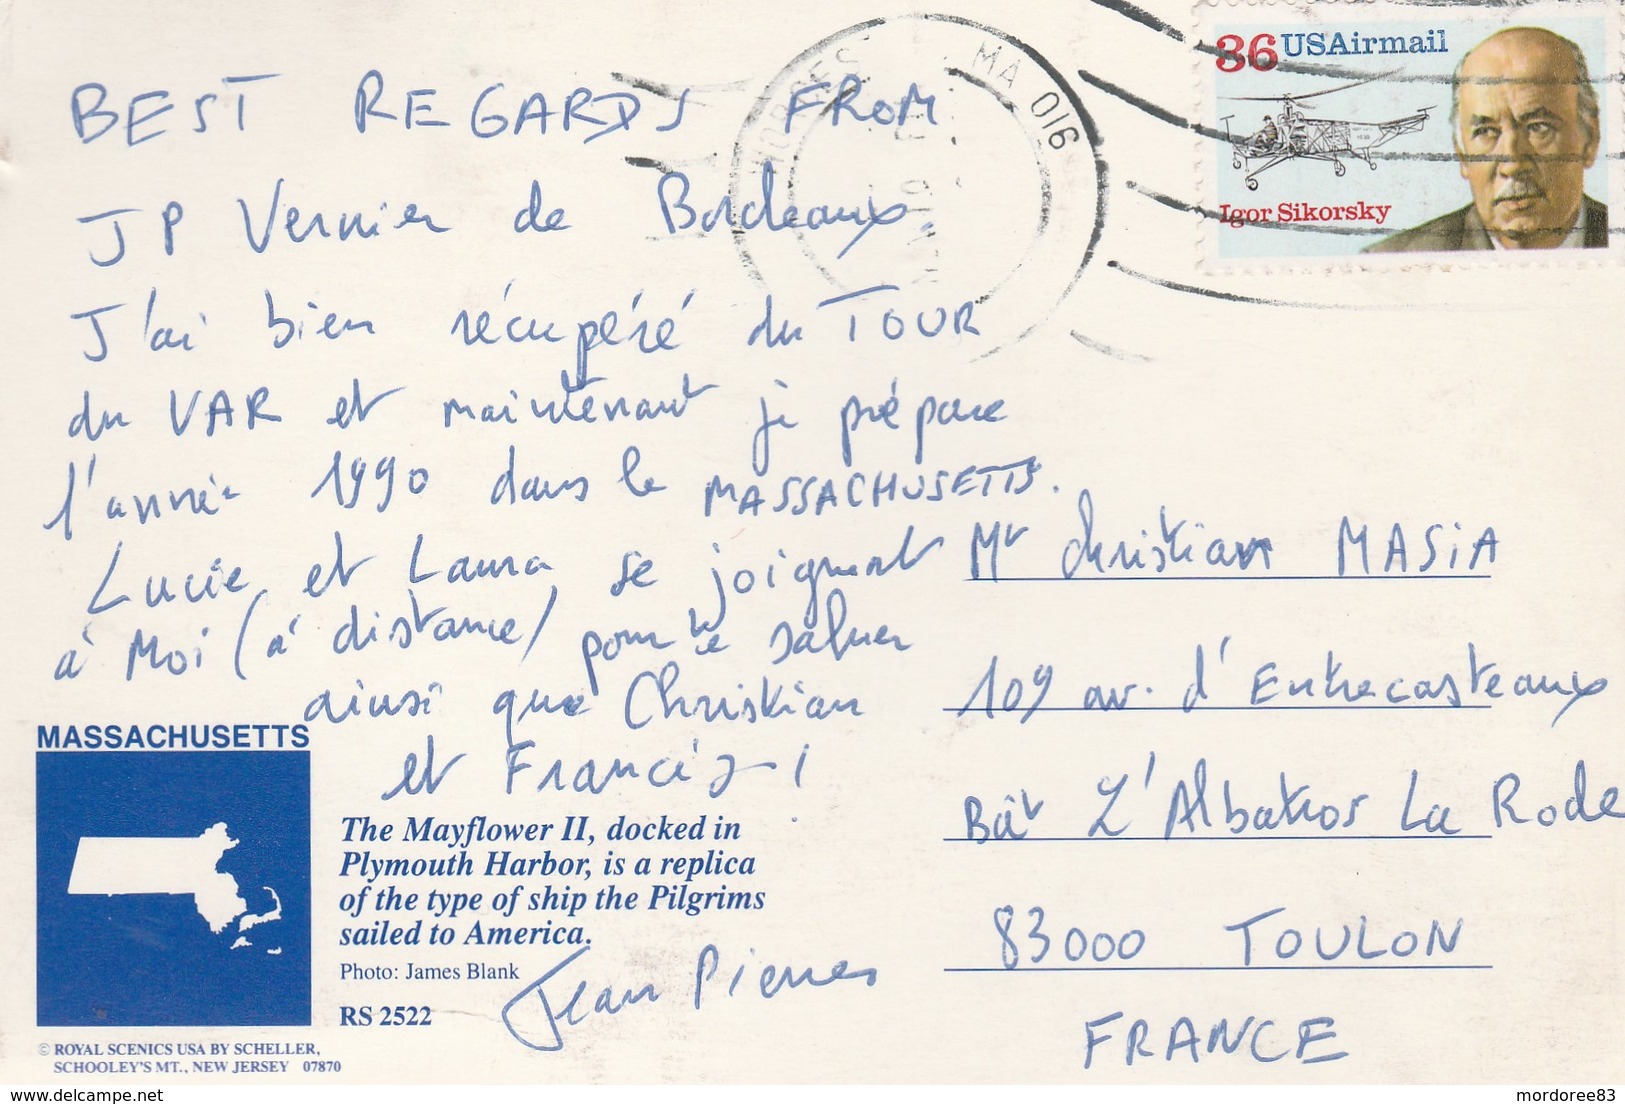 BEST REGARDS FROM
JP Vernier de Bordeaux
J'ai bien récupéré du TOUR
du VAR et maintenant je prépare
l'année 1990 dans le MASSACHUSETTS.
Lucie et Laura se joignent
à Moi (à distance) pour te saluer
ainsi que Christian
et Francis !
Jean Pierre
MASSACHUSETTS
The Mayflower II, docked in
Plymouth Harbor, is a replica
of the type of ship the Pilgrims
sailed to America.
Photo: James Blank
RS 2522
© ROYAL SCENICS USA BY SCHELLER,
SCHOOLEY'S MT., NEW JERSEY 07870
MA 016
36 USAirmail
Igor Sikorsky
Mr Christian MASIA
109 av. d'Entrecasteaux
Bât L'Albatros La Rode
83000 TOULON
FRANCE
mordoree83